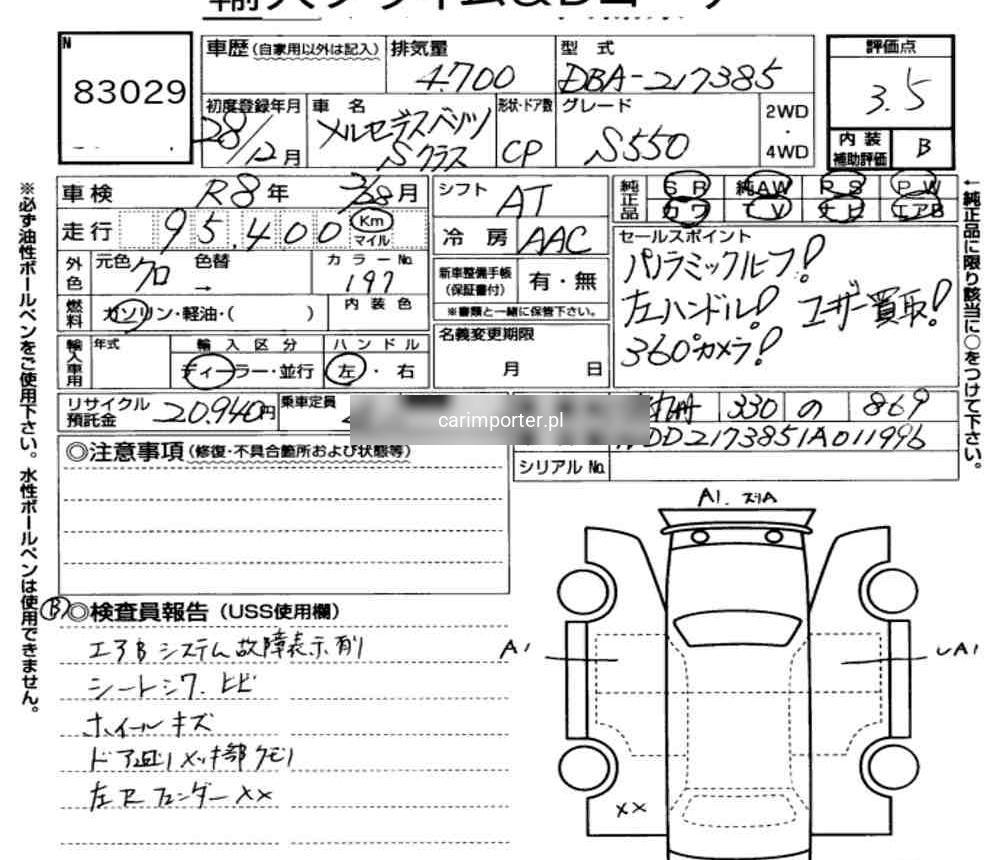 N
83029
車歴(自家用以外は記入) 排気量 4.700 型式 DBA-217385
評価点 3.5
内装補助評価 B
初度登録年月 28/12月 車名 メルセデスベンツ Sクラス 形状・ドア数 CP グレード S550 2WD・4WD
車検 R8年 月
走行 95,400 Km マイル
シフト AT
冷房 AAC
純正品 SR 純AW PS PW
カワ TV ナビ エアB
セールスポイント
パノラミックルーフ!
左ハンドル! ユーザー買取!
360°カメラ!
外色 元色 クロ 色替 → カラーNo. 197
燃料 ガソリン・軽油・( ) 内装色
新車整備手帳(保証書付) 有・無
※書類と一緒に保管下さい。
名義変更期限 月 日
輸入車用 年式 輸入区分 ディーラー・並行 ハンドル 左・右
リサイクル預託金 20,940円 乗車定員
carimporter.pl
330 の 869
DD2173851A011996
シリアルNo.
◎注意事項(修復・不具合箇所および状態等)
Ⓑ◎検査員報告(USS使用欄)
エアBシステム故障表示有り
シートシワ、ヒビ
ホイールキズ
ドア廻りメッキ部クモリ
左Rフェンダー××
A1. スリA
A1
UA1
××
※必ず油性ボールペンをご使用下さい。水性ボールペンは使用できません。
←純正品に限り該当に○をつけて下さい。